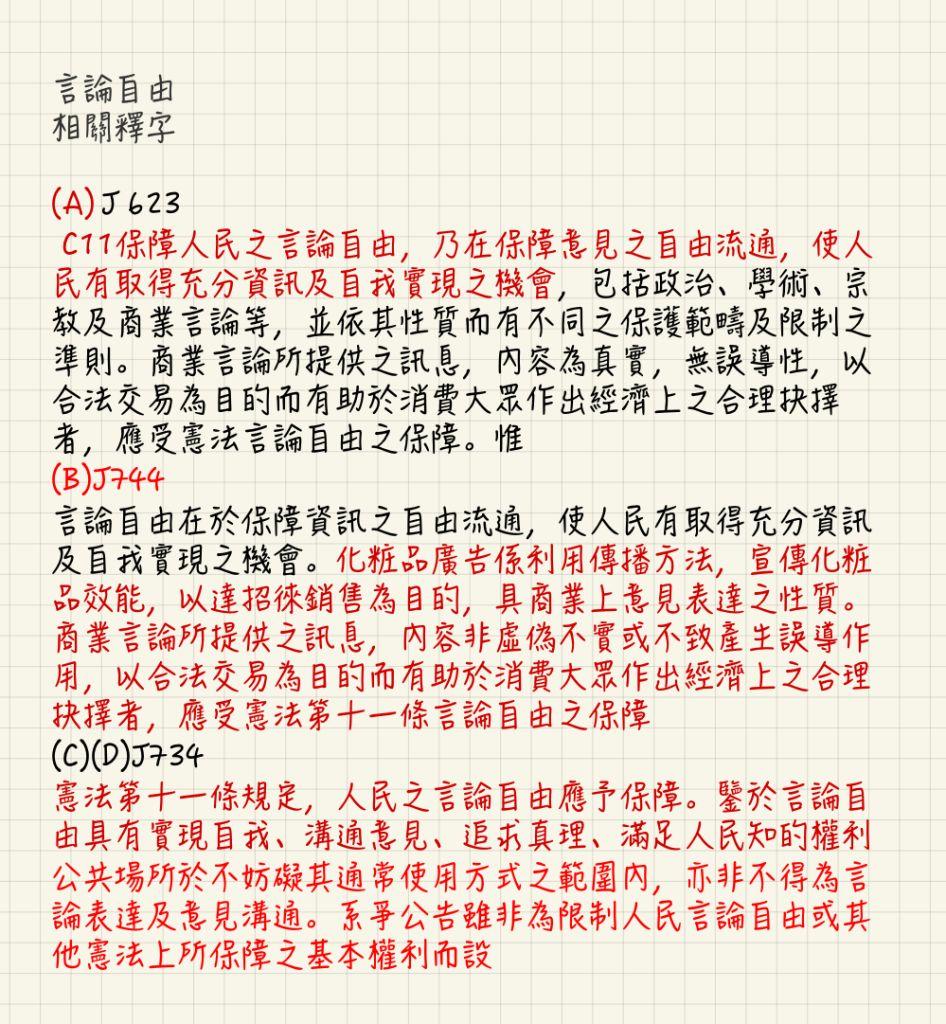 言論自由
相關釋字
(A) J 623
C11保障人民之言論自由，乃在保障意見之自由流通，使人
民有取得充分資訊及自我實現之機會，包括政治、學術、宗
教及商業言論等，並依其性質而有不同之保護範疇及限制之
準則。商業言論所提供之訊息，內容為真實，無誤導性，以
合法交易為目的而有助於消費大眾作出經濟上之合理抉擇
者，應受憲法言論自由之保障。惟
(B)J744
言論自由在於保障資訊之自由流通，使人民有取得充分資訊
及自我實現之機會。化粧品廣告係利用傳播方法，宣傳化粧
品效能，以達招徠銷售為目的，具商業上意見表達之性質。
商業言論所提供之訊息，內容非虛偽不實或不致產生誤導作
用，以合法交易為目的而有助於消費大眾作出經濟上之合理
抉擇者，應受憲法第十一條言論自由之保障
(C)(D)J734
憲法第十一條規定，人民之言論自由應予保障。鑒於言論自
由具有實現自我、溝通意見、追求真理、滿足人民知的權利
公共場所於不妨礙其通常使用方式之範圍內，亦非不得為言
論表達及意見溝通。系爭公告雖非為限制人民言論自由或其
他憲法上所保障之基本權利而設